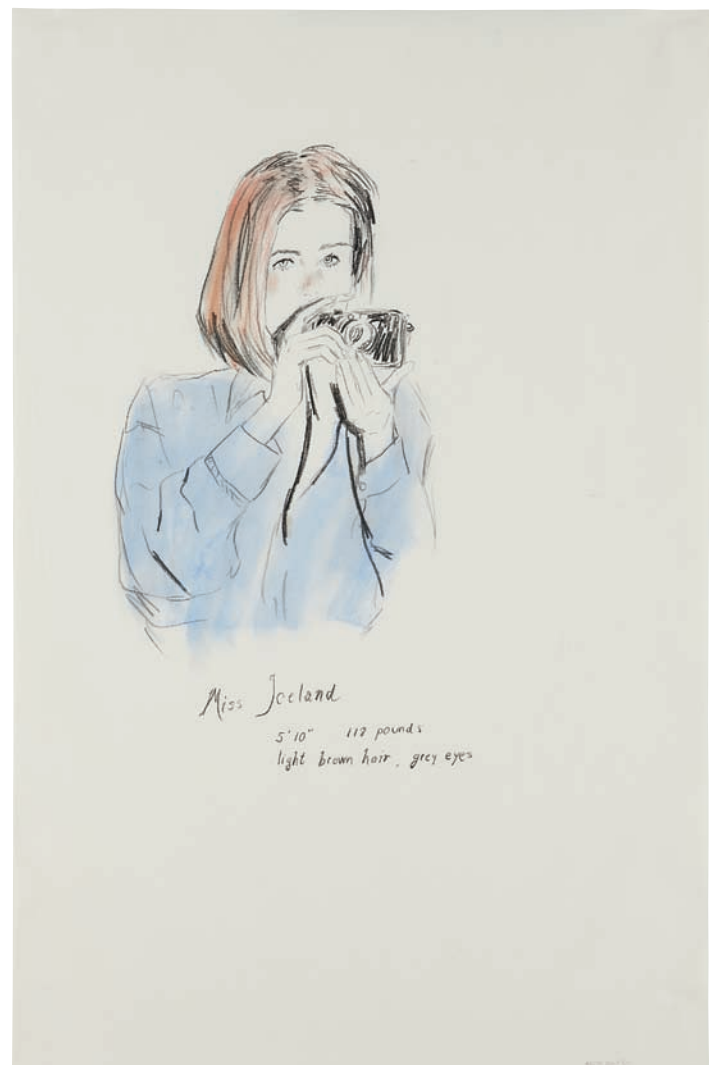 Miss Iceland
5'10" 112 pounds
light brown hair, grey eyes